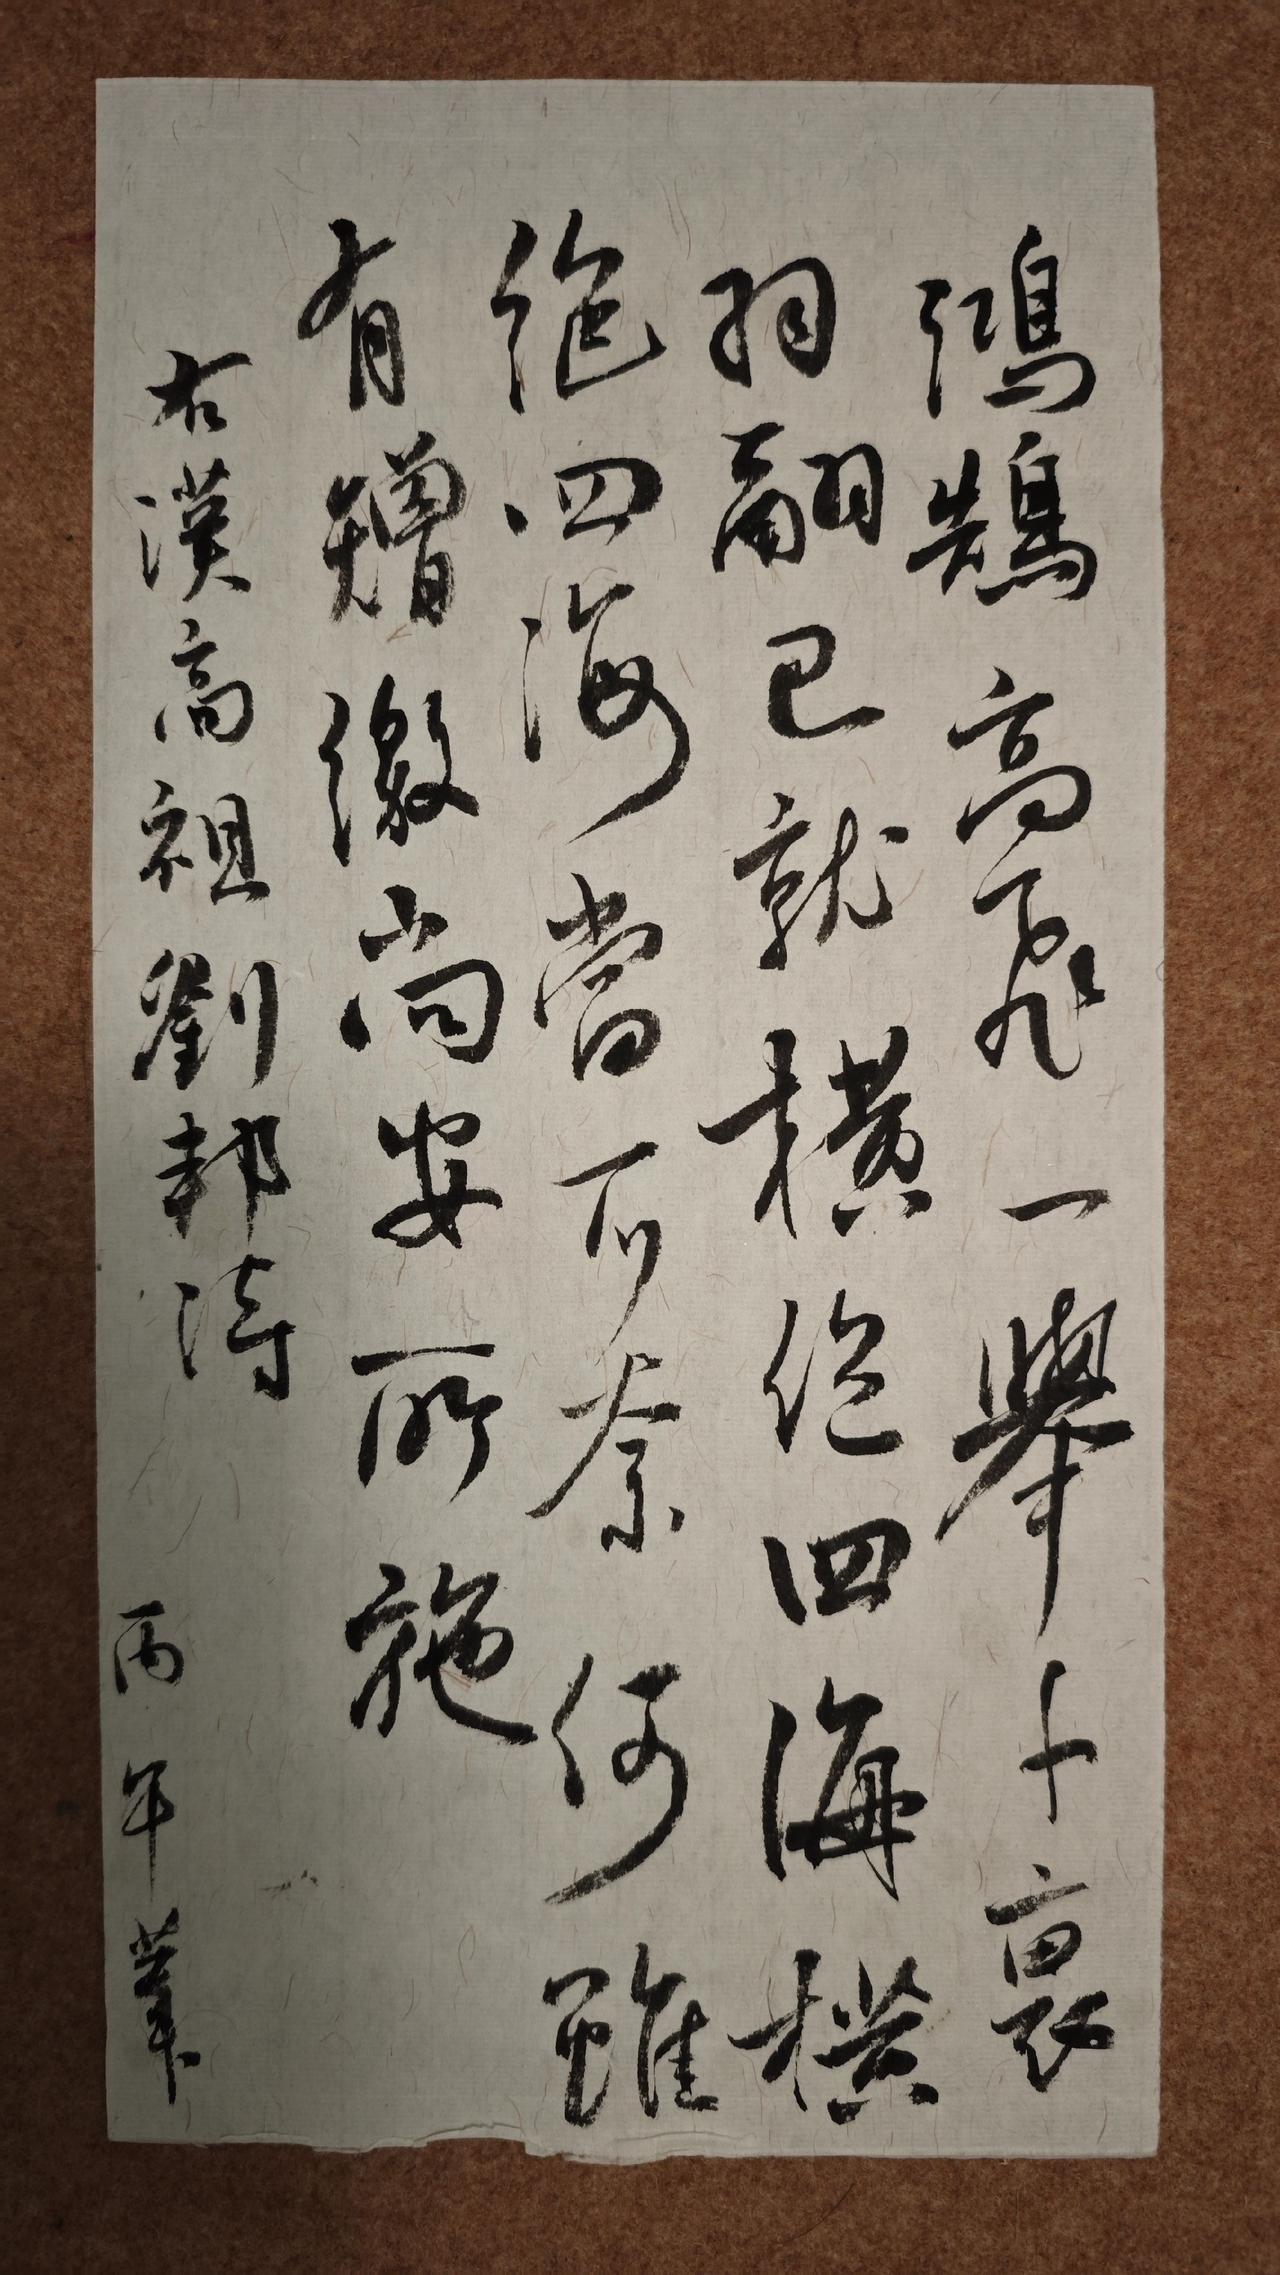 鴻鵠高飛一舉千裏
羽翮已就橫绝四海橫
绝四海當可奈何雖
有矰繳尚安所施
右漢高祖劉邦詩
丙午